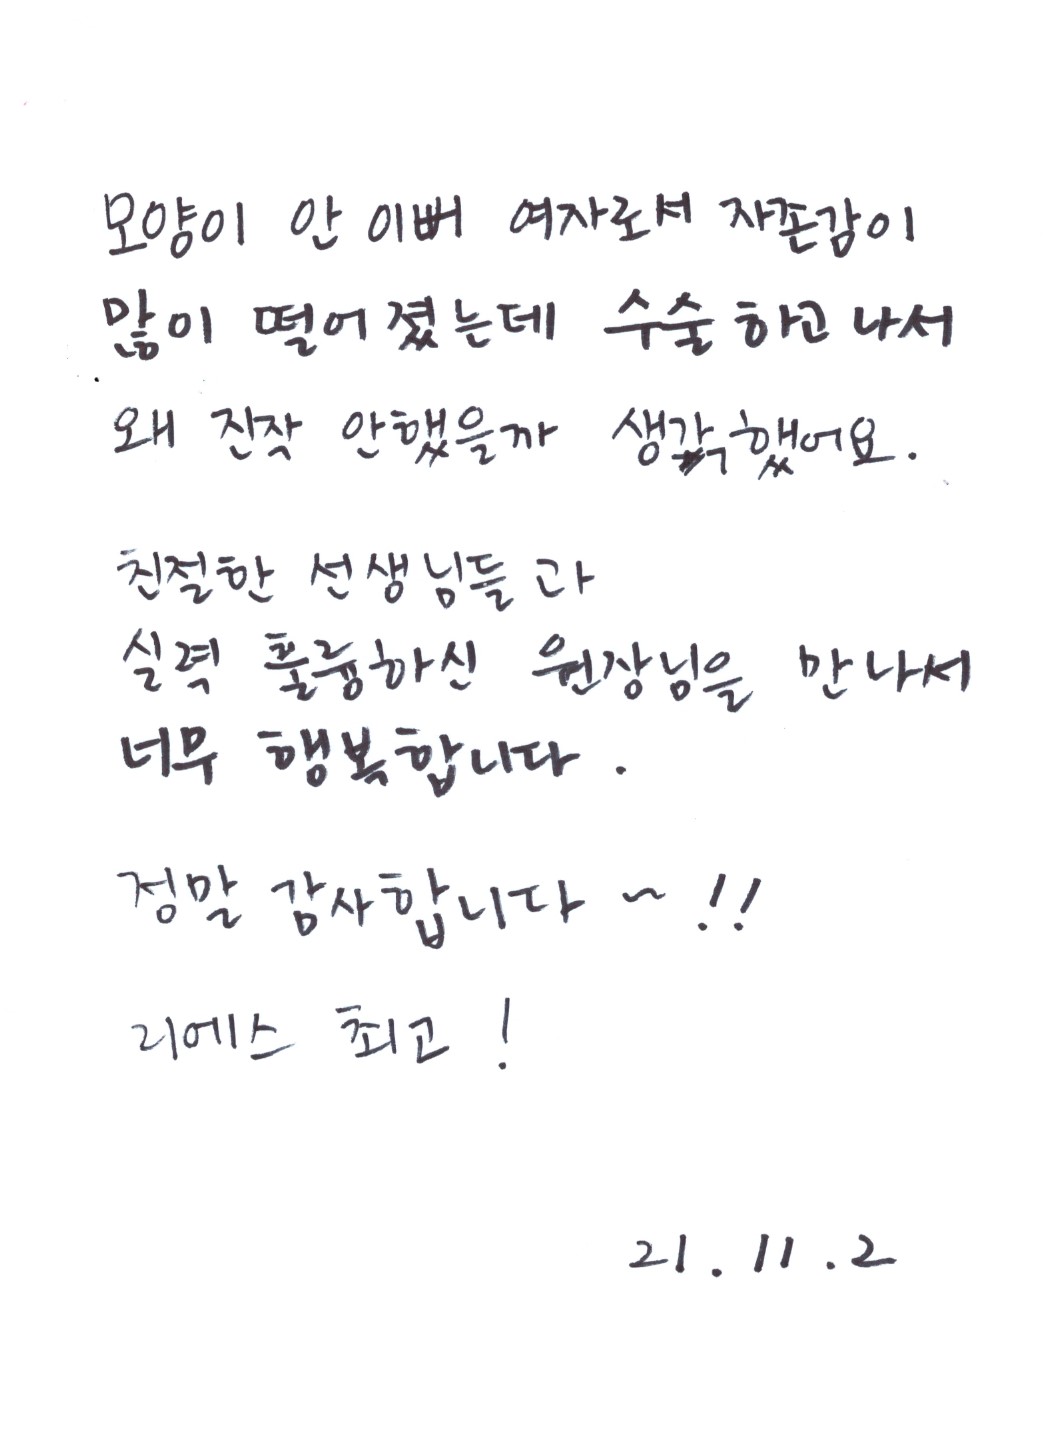 모양이 안 이뻐 여자로서 자존감이
많이 떨어졌는데 수술하고 나서
왜 진작 안했을까 생각했어요.
친절한 선생님들과
실력 훌륭하신 원장님을 만나서
너무 행복합니다.
정말 감사합니다~!!
리에스 최고!
21.11.2